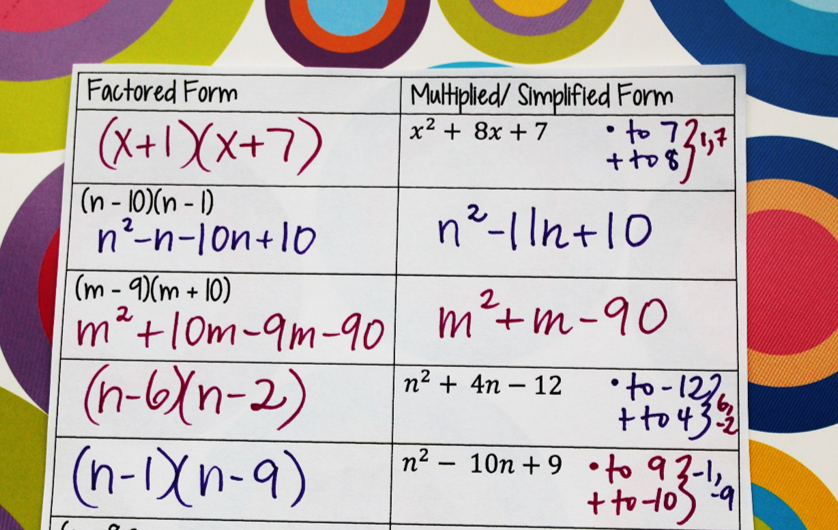 Factored Form
Multiplied/ Simplified Form
(x+1)(x+7)
x² + 8x + 7
• to 7 } 1,7
+ to 8
(n - 10)(n - 1)
n²-n-10n+10
n²-11n+10
(m - 9)(m + 10)
m²+10m-9m-90
m²+m-90
(n-6)(n-2)
n² + 4n − 12
• to -12 } 6,
+ to 4 -2
(n-1)(n-9)
n² − 10n + 9
• to 9 } -1,
+ to -10 -9